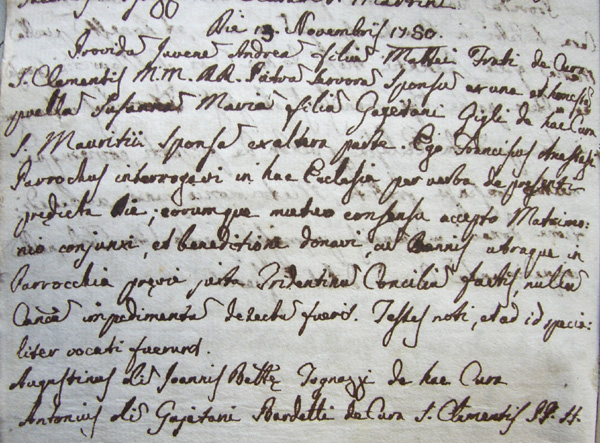 Die 13 Novembris 1780.
Providū Juvenē Andreā filiū Mattei Frati de Cura
S. Clementis M.M. RR. Patrū Servorū Sponsū ex una et honestā
puellā Susannā Mariā filiā Gajetani Gigli de hac Cura
S. Mauritii Sponsā ex altera parte. Ego Franciscus Anastasi
Parrochus interrogavi in hac Ecclesia per verba de presenti
predicta Die; eorumque mutuo consensu accepto Matrimo:
nio conjunxi, et beneditione donavi, cū Bannis utraque in
Parrocchia previe juxta Tridentinū Conciliū factis nullū
Canc̄ impedimentū detectū fuerit. Testes noti, et ad id specia:
liter vocati fuerunt.
Augustinus Joannis Bettę Tognazzi de hac Cura
Antonius Gajetani Bardetti de Cura S. Clementis